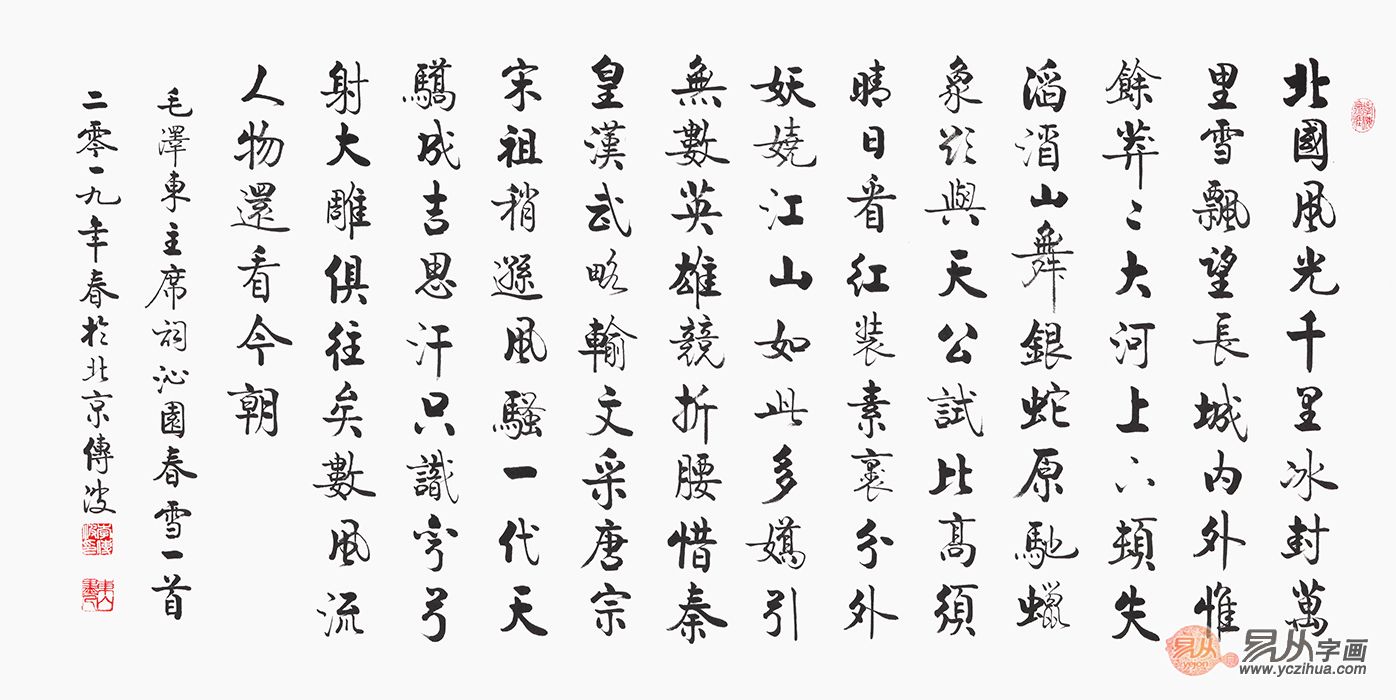 北國風光千里冰封萬
里雪飄望長城內外惟
餘莽〻大河上下頓失
滔滔山舞銀蛇原馳蠟
象欲與天公試比高須
晴日看紅裝素裹分外
妖嬈江山如此多嬌引
無數英雄競折腰惜秦
皇漢武略輸文采唐宗
宋祖稍遜風騷一代天
驕成吉思汗只識彎弓
射大雕俱往矣數風流
人物還看今朝
毛澤東主席詞沁園春雪一首
二零一九年春於北京傳波
易从
易从字画
www.yczihua.com